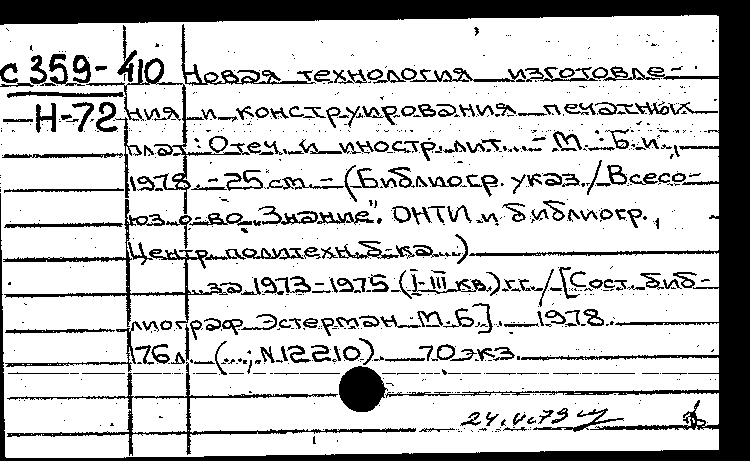 С359-410 Новая технология изготовле-
Н-72 ния и конструирования печатных
плат: Отеч. и иностр. лит... - М.: Б.и.,
1978. - 25 см. - (Библиогр. указ. / Всесо-
юз. о-во "Знание". ОНТИ и библиогр.,
Центр. политехн. б-ка...)
...за 1973-1975 (I-III кв.) гг. / [Сост. биб-
лиограф Эстерман М.Б.]. 1978.
176 л. (...; N12210). 70 экз.